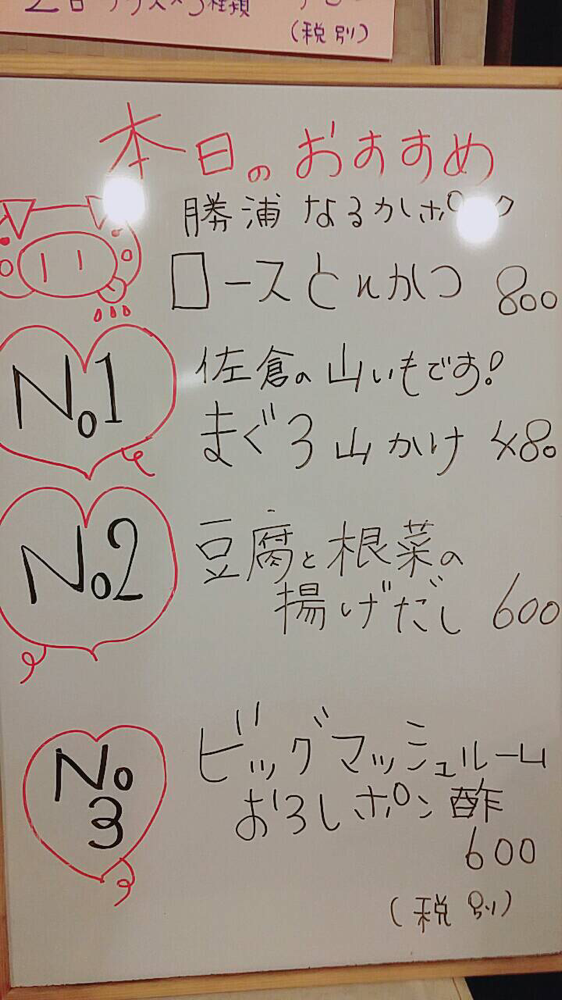 (税別)
本日のおすすめ
勝浦 なるかポ
ロースとんかつ 800
No1
佐倉の山いもです!
まぐろ山かけ 480
No2
豆腐と根菜の
揚げだし 600
No3
ビッグマッシュルーム
おろしポン酢
600
(税別)